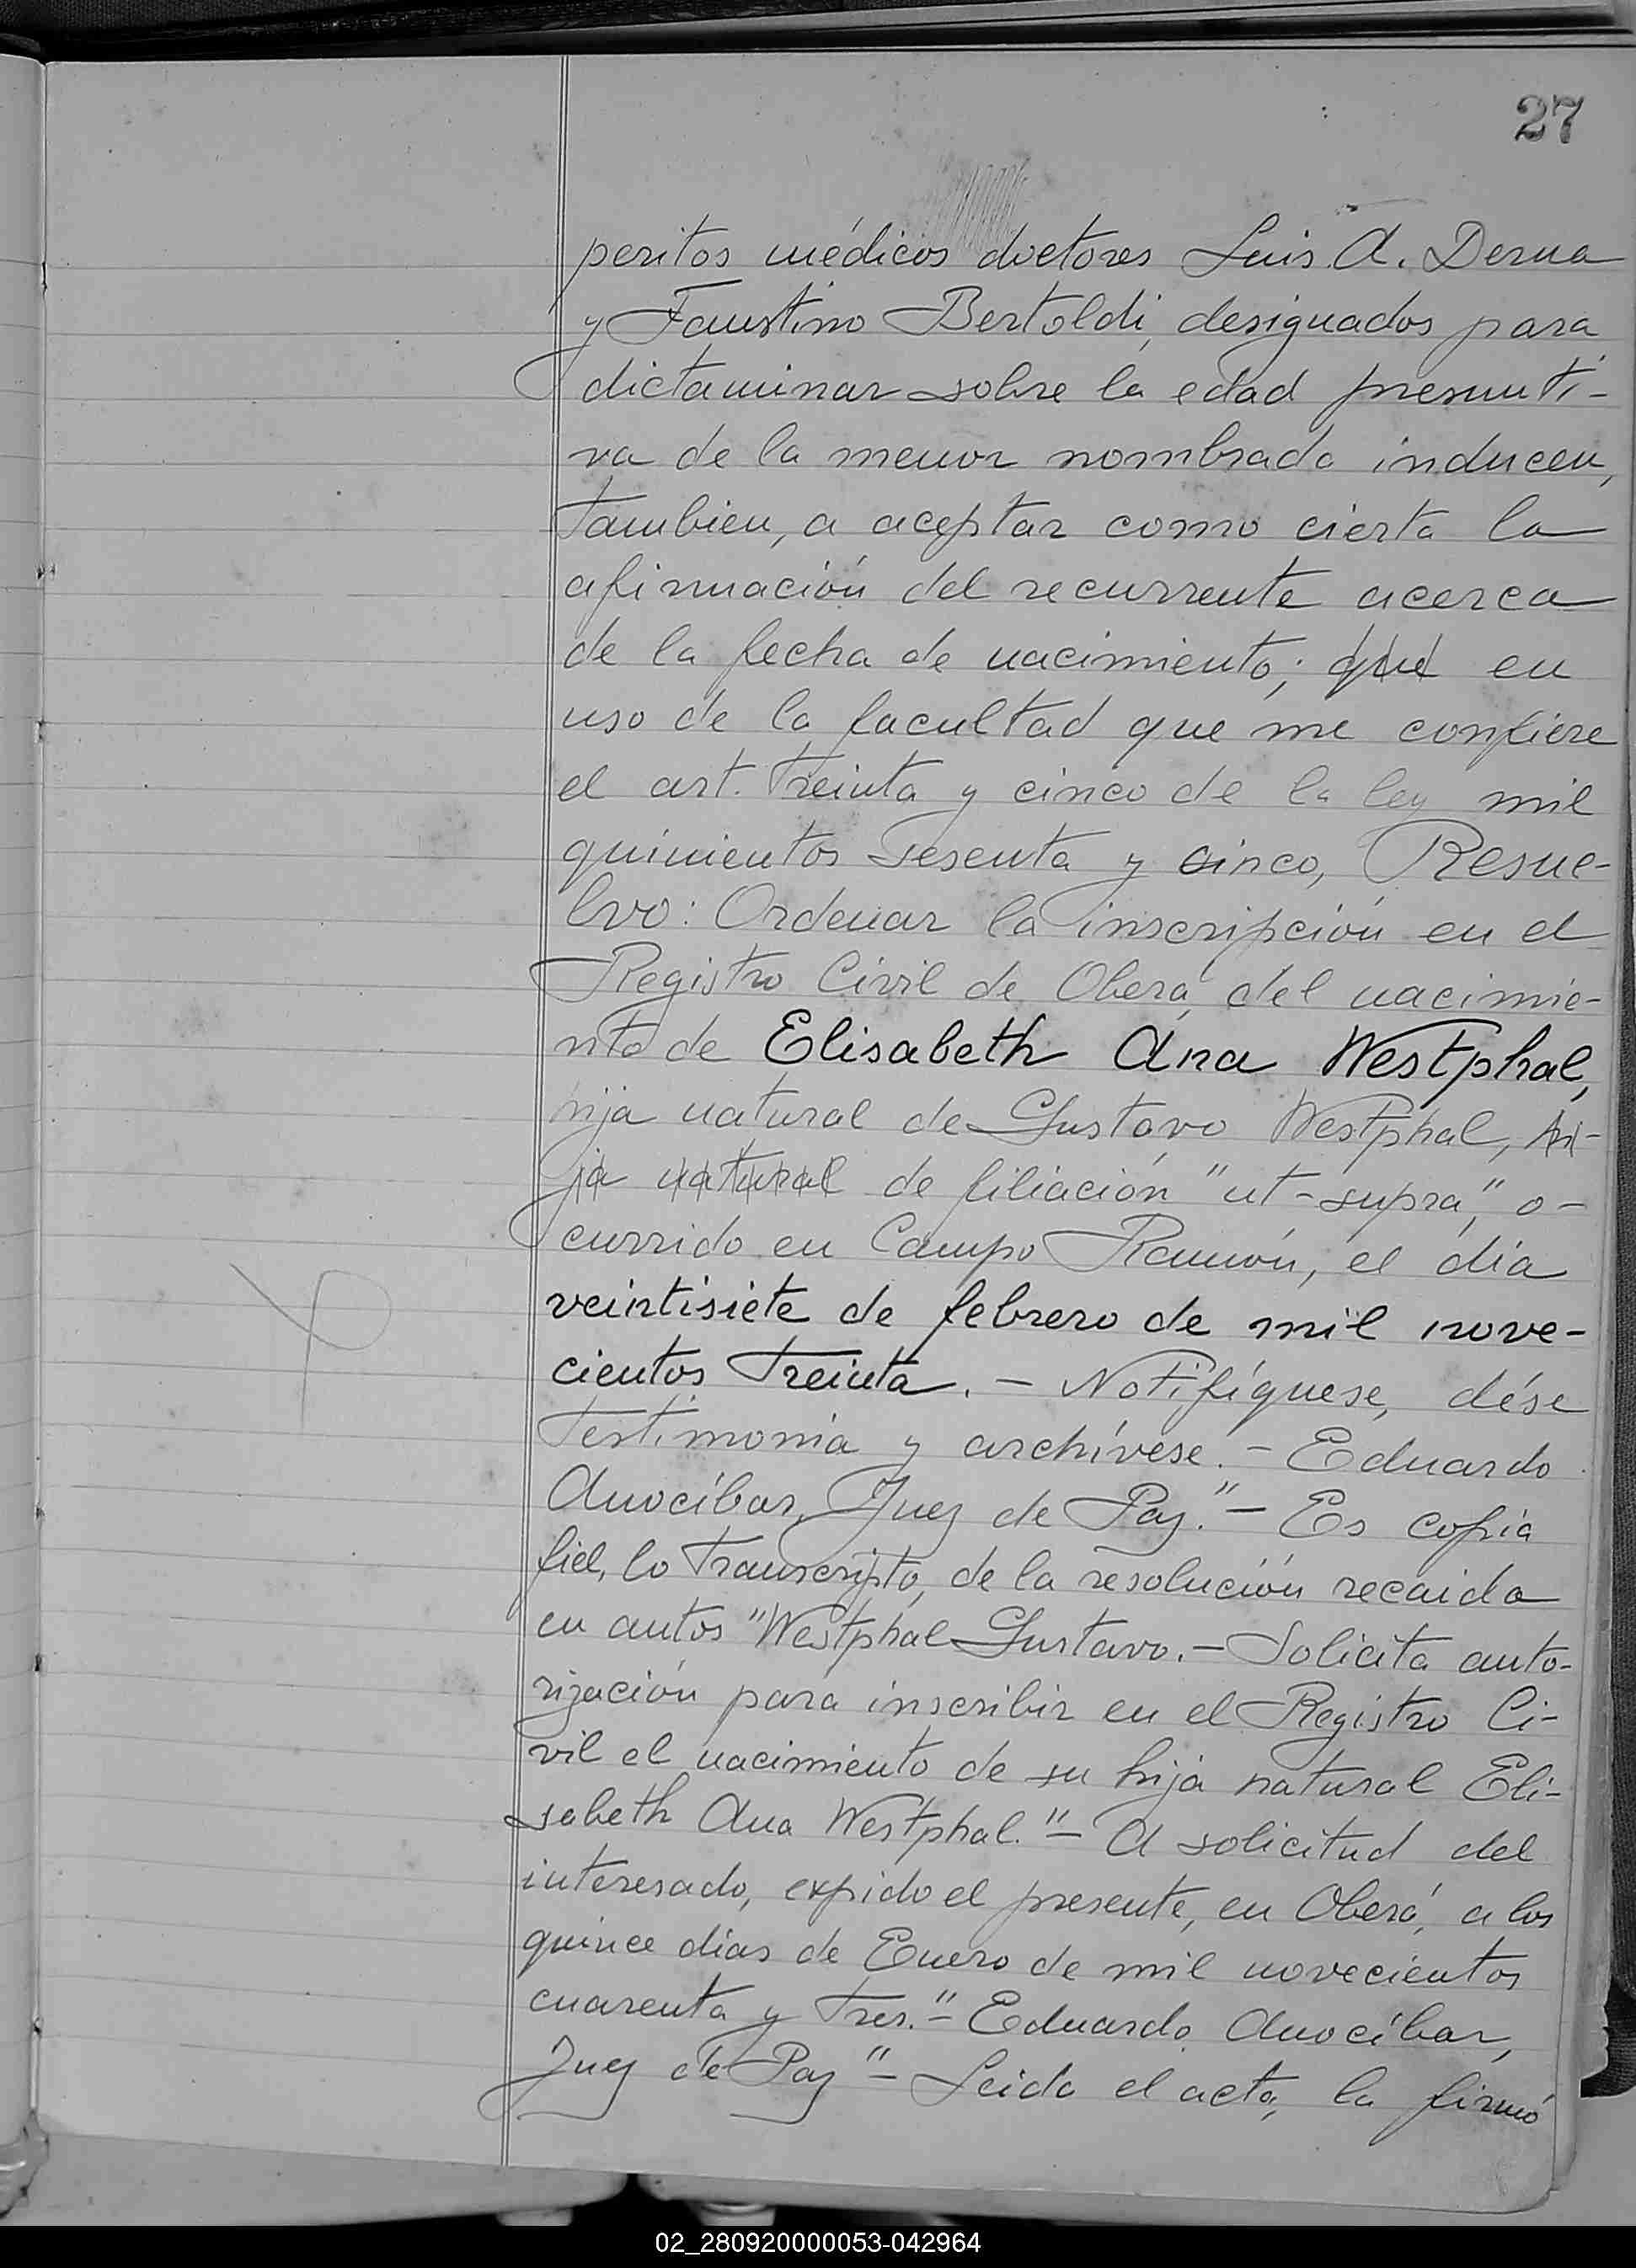 27
peritos médicos doctores Luis A. Derna
y Faustino Bertoldi, designados para
dictaminar sobre la edad presunti-
va de la menor nombrada inducen,
tambien, a aceptar como cierta la
afirmación del recurrente acerca
de la fecha de nacimiento; que en
uso de la facultad que me confiere
el art. treinta y cinco de la ley mil
quinientos sesenta y cinco, Resue-
lvo: Ordenar la inscripción en el
Registro Civil de Oberá, del nacimie-
nto de Elisabeth Ana Westphal,
hija natural de Gustavo Westphal, hi-
ja natural de filiación "ut-supra", o-
currido en Campo Ramón, el día
veintisiete de febrero de mil nove-
cientos treinta. — Notifíquese, dése
testimonia y archívese. — Eduardo
Anocíbar, Juez de Paz." — Es copia
fiel, lo transcripto, de la resolución recaida
en autos "Westphal Gustavo. — Solicita auto-
rización para inscribir en el Registro Ci-
vil el nacimiento de su hija natural Eli-
sabeth Ana Westphal." — A solicitud del
interesado, expido el presente, en Oberá, a los
quince días de Enero de mil novecientos
cuarenta y tres." — Eduardo Anocíbar,
Juez de Paz" — Leida el acta, la firmó
02_280920000053-042964